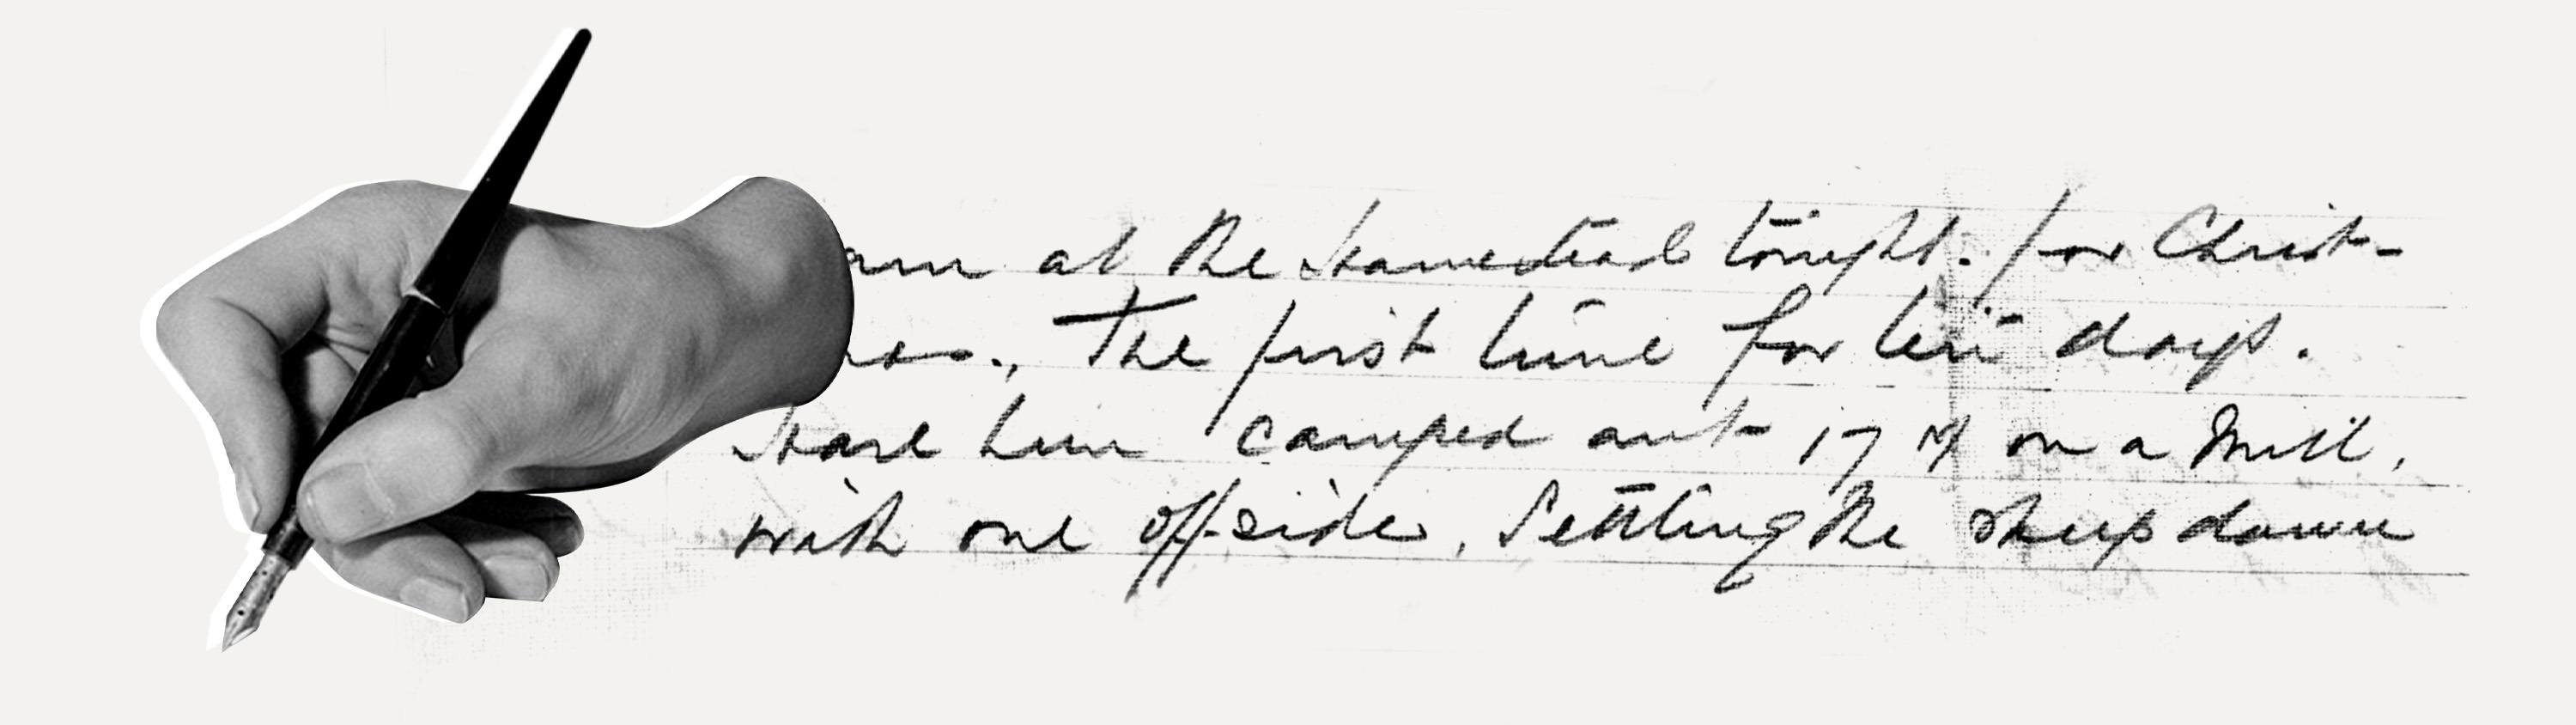 am at the Homestead tonight. for Christ-
mas., The first time for ten days.
Have been camped out 17 M on a Mill,
with one offsider, Settling the sheep down